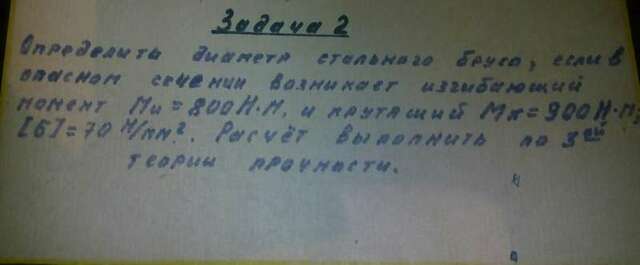 Задача 2
Определить диаметр стального бруса, если в
опасном сечении возникает изгибающий
момент Ми=800Н·м. и крутящий Мк=900Н·м,
[б]=70 Н/мм². Расчёт выполнить по 3ей
теории прочности.